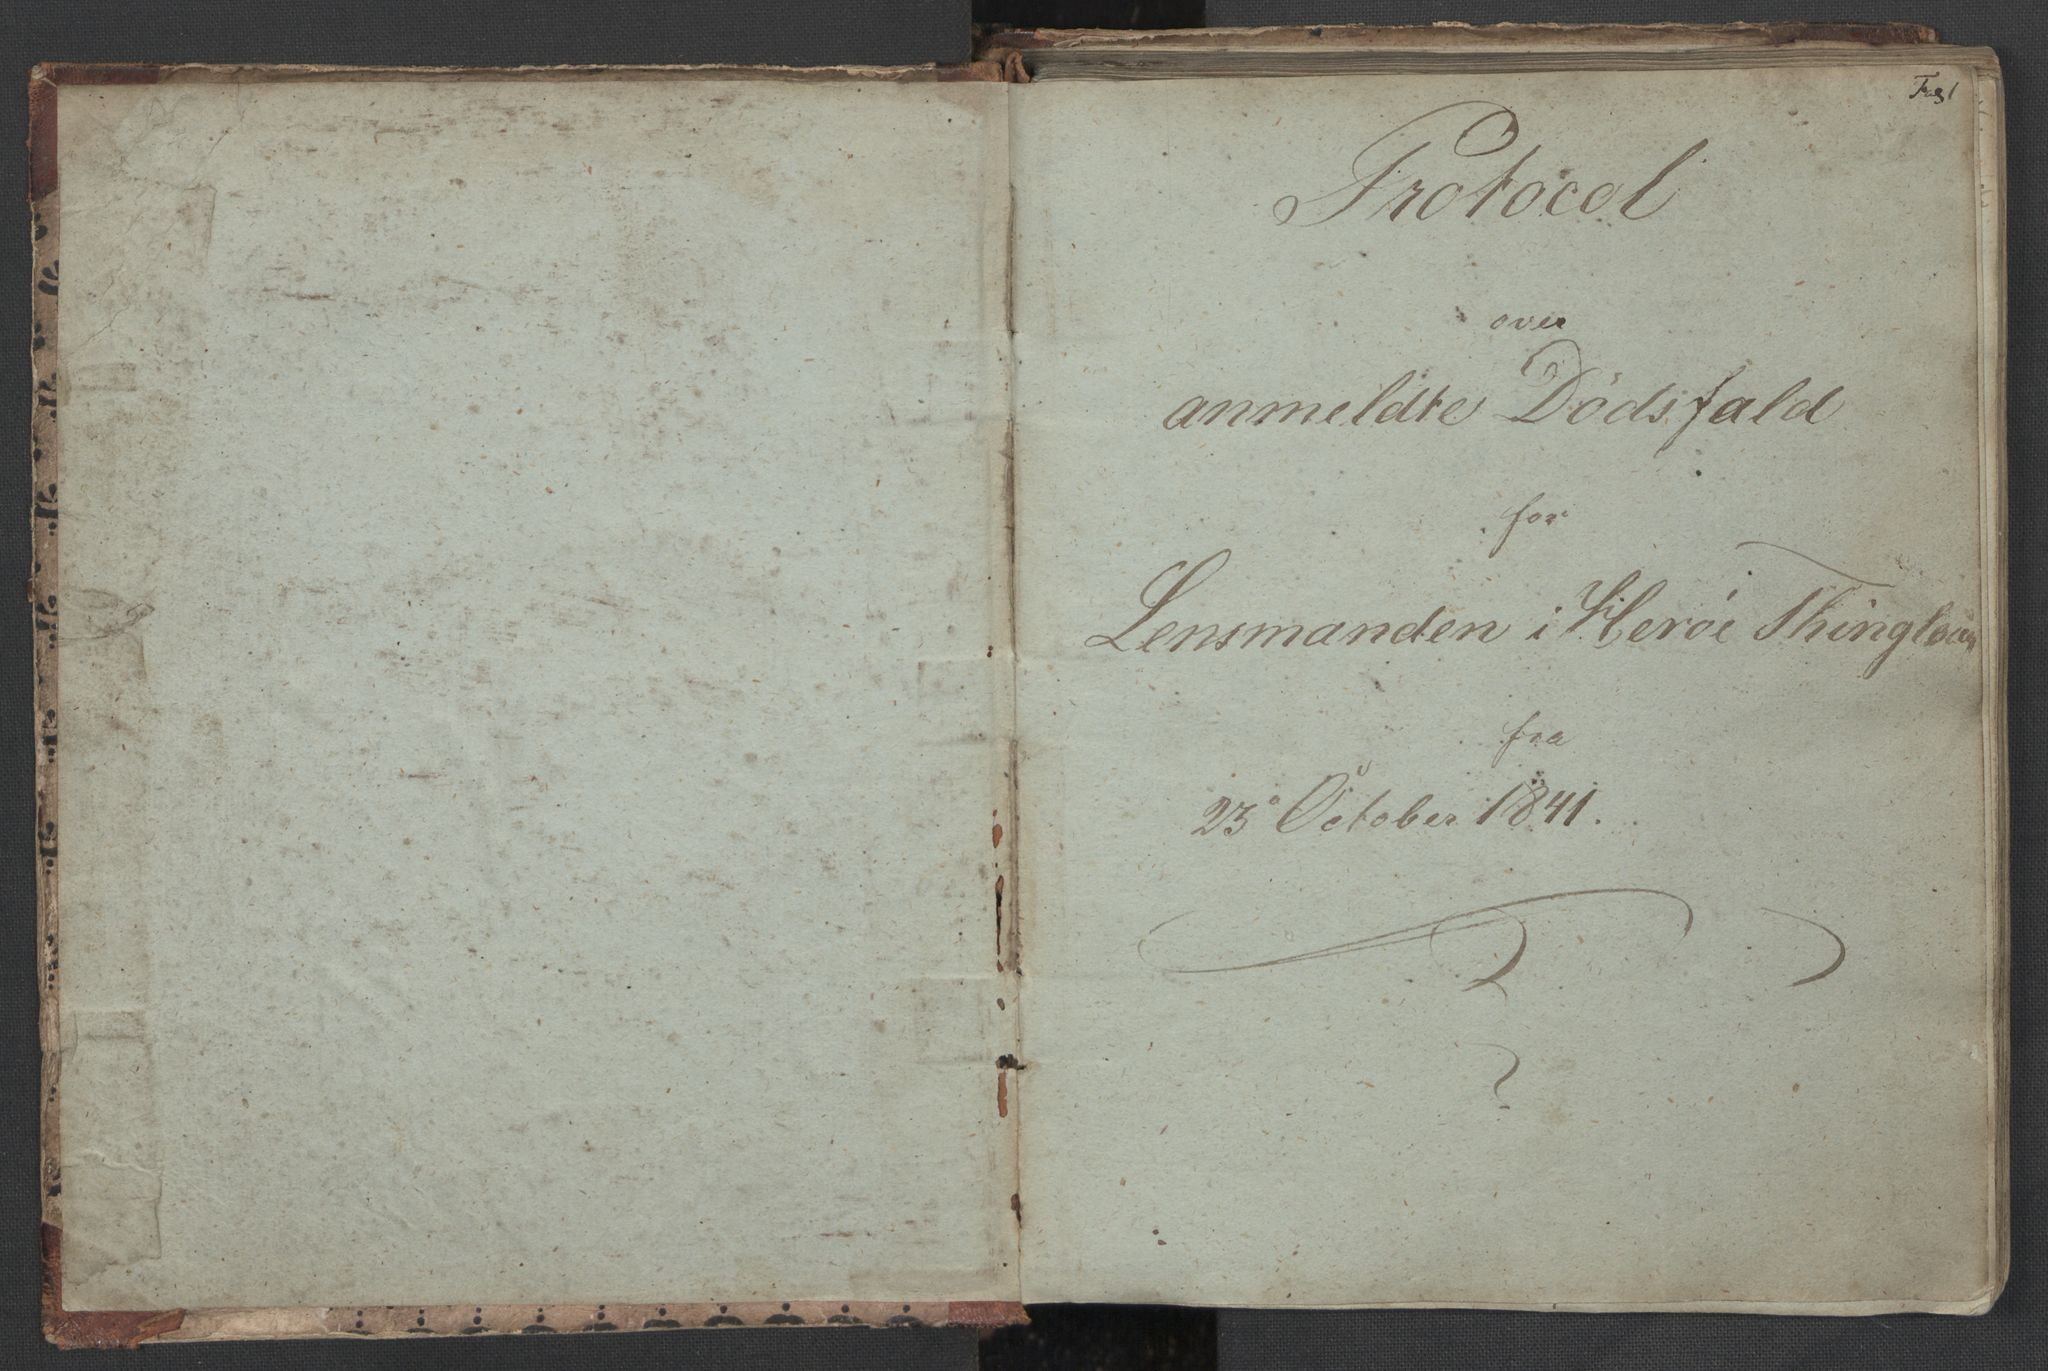 Protocol
over
anmeldte Dödsfald
for
Lensmanden i Heröe Thinglaug
fra
23º October 1841.